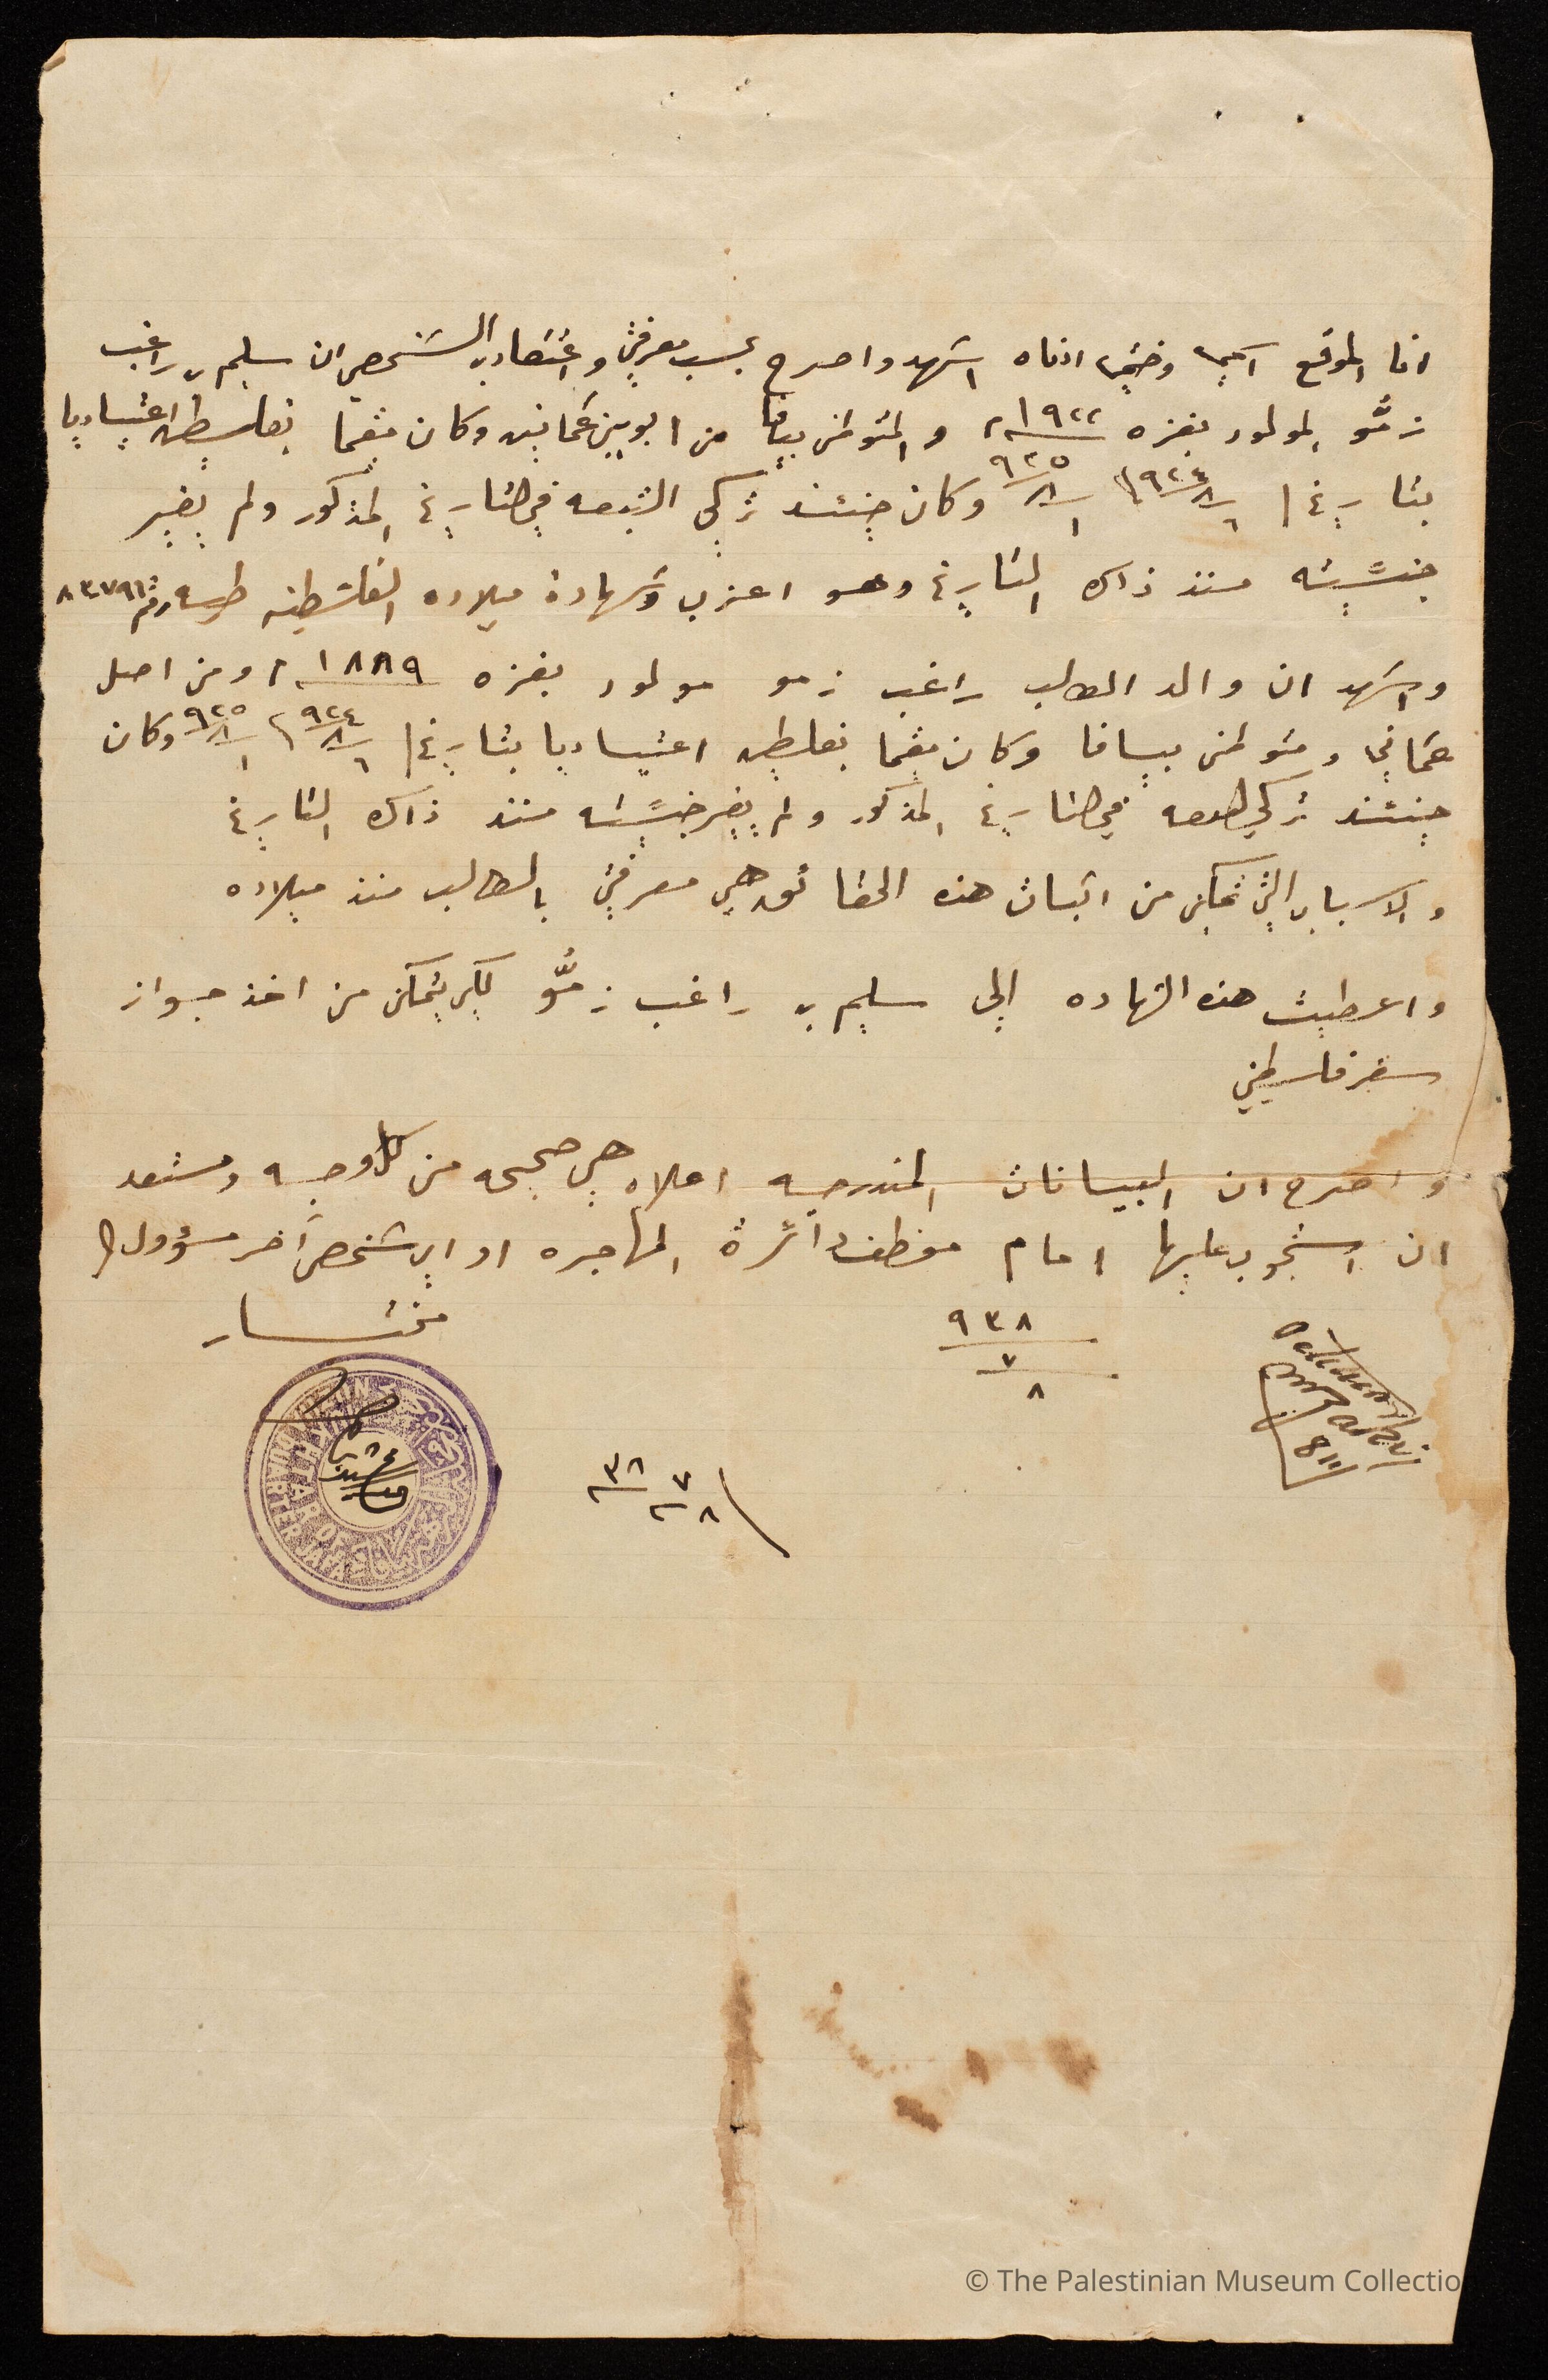 انا الموقع اسمي وختمي ادناه اشهد واصرح بحسب معرفتي واعتقادي الشخصي ان سليم راغب
زمّو المولود بغزه ١٩٢٢ والمتوطن بيافا من ابوين عثمانيين وكان مقيما بفلسطين اعتياديا
بتاريخ ٦/٨/٩٢٤ و ١/٨/٩٢٥ وكان حينئذ تركي التبعه في التاريخ المذكور ولم يغير
جنسيته منذ ذاك التاريخ وهو اعزب وشهادة ميلاده الفلسطينيه طيه رقم ٨٣٧٩١
واشهد ان والد الطالب راغب زمو مولود بغزه ١٨٨٩ ومن اصل
عثماني ومتوطن بيافا وكان مقيما بفلسطين اعتياديا بتاريخ ٦/٨/٩٢٤ و ١/٨/٩٢٥ وكان
حينئذ تركي التبعه في التاريخ المذكور ولم يغير جنسيته منذ ذاك التاريخ
والاسباب التي تمكني من اثبات هذه الحقائق هي معرفتي بالطالب منذ ميلاده
واعطيت هذه الشهاده الى سليم راغب زمّو لكي يتمكن من اخذ جواز
سفر فلسطيني
واصرح ان البيانات المندرجه اعلاه هي صحيحه من كل وجه ومستعد
ان استجوب عليها امام موظف دائرة المهاجره او اي شخص آخر مسؤول
مختار
٩٣٨
٧
٨
٨/٧/٣٨
811
MUKHTAR OF
QUARTER JAFFA
© The Palestinian Museum Collectio